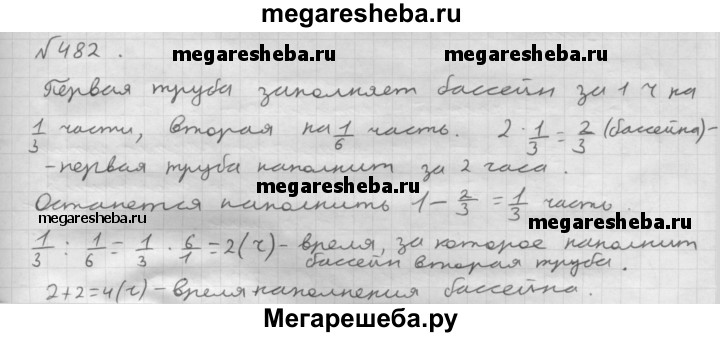 megaresheba.ru
№482.
megaresheba.ru megaresheba.ru
Первая труба заполняет бассейн за 1 ч на
1/3 части, вторая на 1/6 часть. 2 · 1/3 = 2/3 (бассейна) -
- первая труба наполнит за 2 часа.
megaresheba.ru
Останется наполнить 1 - 2/3 = 1/3 часть.
megaresheba.ru megaresheba.ru
1/3 : 1/6 = 1/3 · 6/1 = 2 (ч) - время, за которое наполнит
бассейн вторая труба.
2+2=4 (ч) - время наполнения бассейна.
Мегарешеба.ру